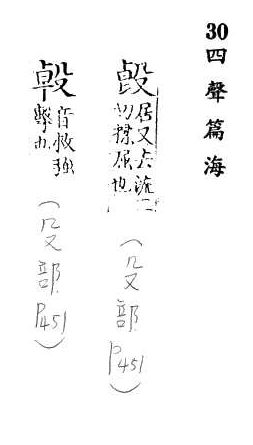 30四聲篇海
𣪘
居又 流二
切糅屈也
(殳部P451)
音救強
擊也
(殳部P451)